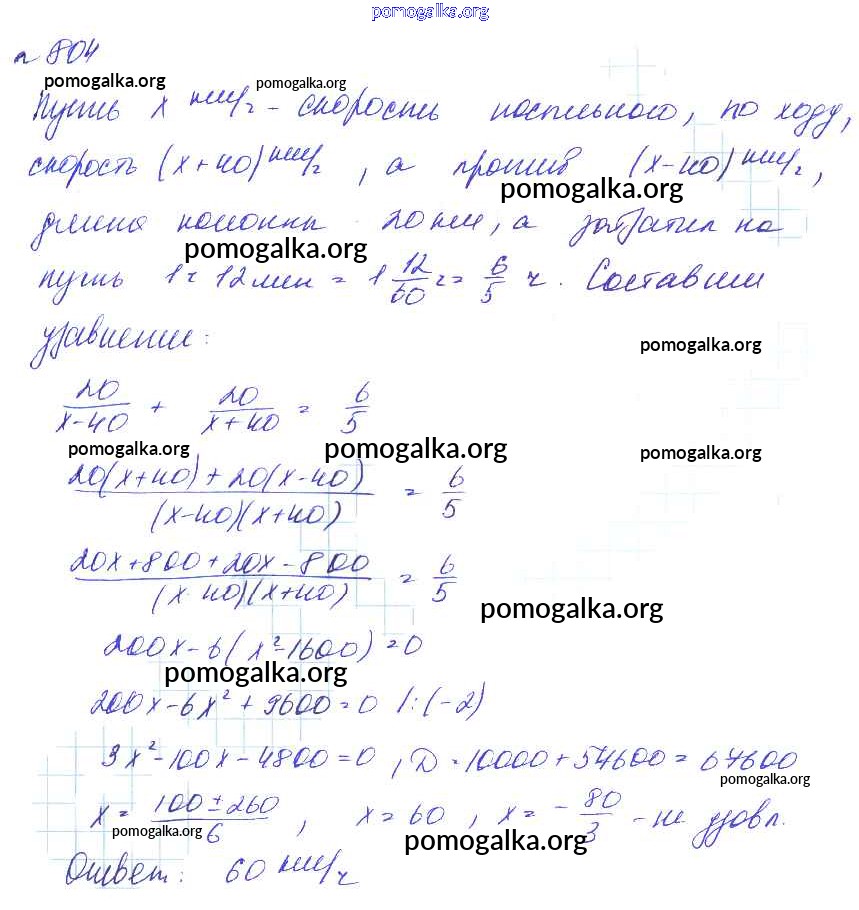 pomogalka.org
№ 804
pomogalka.org pomogalka.org
Пусть x км/ч - скорость посыльного, по ходу,
скорость (x+40) км/ч, а против (x-40) км/ч,
pomogalka.org
длина колонны 20 км, а затратил на
pomogalka.org
путь 1ч 12 мин = 1 12/60 ч = 6/5 ч. Составим
уравнение:
pomogalka.org
20/(x-40) + 20/(x+40) = 6/5
pomogalka.org pomogalka.org pomogalka.org
(20(x+40)+20(x-40))/((x-40)(x+40)) = 6/5
(20x+800+20x-800)/((x 40)(x+40)) = 6/5
pomogalka.org
200x-6(x²-1600)=0
pomogalka.org
200x-6x²+9600=0 /:(-2)
3x²-100x-4800=0, D=10000+57600=67600
pomogalka.org
x= (100±260)/6, x=60, x= -80/3 - не удовл.
pomogalka.org pomogalka.org
Ответ: 60 км/ч